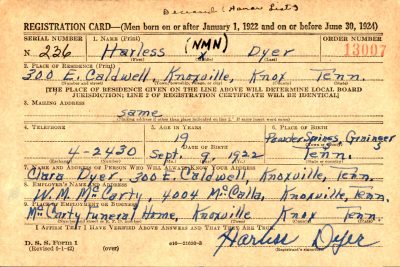 Deceased (Honor List)
REGISTRATION CARD—(Men born on or after January 1, 1922 and on or before June 30, 1924)
SERIAL NUMBER 1. NAME (Print) ORDER NUMBER
N 226 Harless (NMN) Dyer 13007
(First) (Middle) (Last)
2. PLACE OF RESIDENCE (Print)
300 E. Caldwell, Knoxville, Knox Tenn.
[THE PLACE OF RESIDENCE GIVEN ON THE LINE ABOVE WILL DETERMINE LOCAL BOARD
JURISDICTION; LINE 2 OF REGISTRATION CERTIFICATE WILL BE IDENTICAL]
3. MAILING ADDRESS
same
[Mailing address if other than place indicated on line 2. If same insert word same]
4. TELEPHONE 5. AGE IN YEARS 6. PLACE OF BIRTH
19 Powder Springs, Grainger
DATE OF BIRTH
4-2430 Sept. 9, 1922 Tenn.
7. NAME AND ADDRESS OF PERSON WHO WILL ALWAYS KNOW YOUR ADDRESS
Clara Dyer, 300 E. Caldwell, Knoxville, Tenn.
8. EMPLOYER'S NAME AND ADDRESS
W. M. McCarty, 4004 McCalla, Knoxville, Tenn.
9. PLACE OF EMPLOYMENT OR BUSINESS
McCarty Funeral Home, Knoxville Knox Tenn.
I AFFIRM THAT I HAVE VERIFIED ABOVE ANSWERS AND THAT THEY ARE TRUE.
D. S. S. Form 1
(Revised 6-1-42) (over) Harless Dyer
(Registrant's signature)